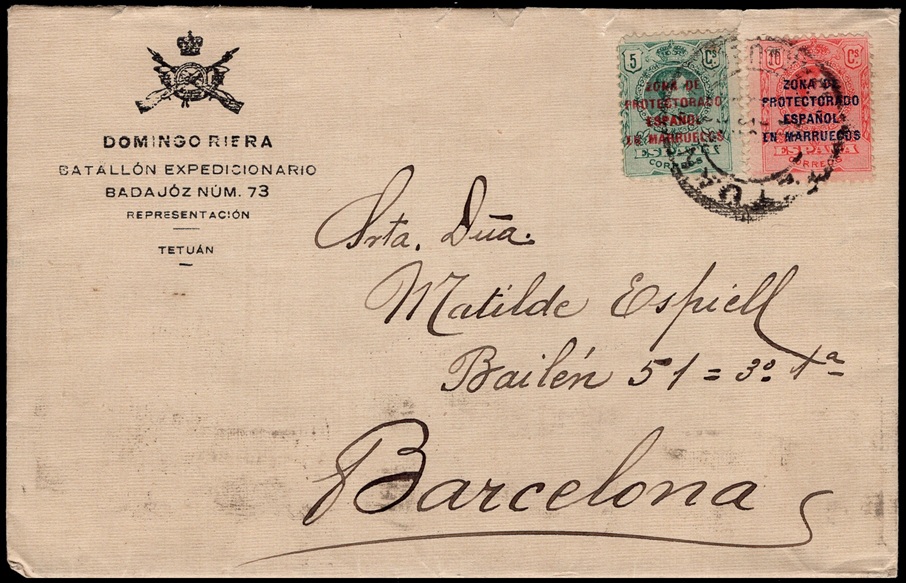 DOMINGO RIERA
BATALLÓN EXPEDICIONARIO
BADAJÓZ NÚM. 73
REPRESENTACIÓN
TETUÁN
5 Cs
ZONA DE
PROTECTORADO
ESPAÑOL
EN MARRUECOS
ESPAÑA
CORREOS
10 Cs
ZONA DE
PROTECTORADO
ESPAÑOL
EN MARRUECOS
ESPAÑA
CORREOS
Srta. Dña.
Matilde Espiell
Bailén 51 = 3º 1ª
Barcelona